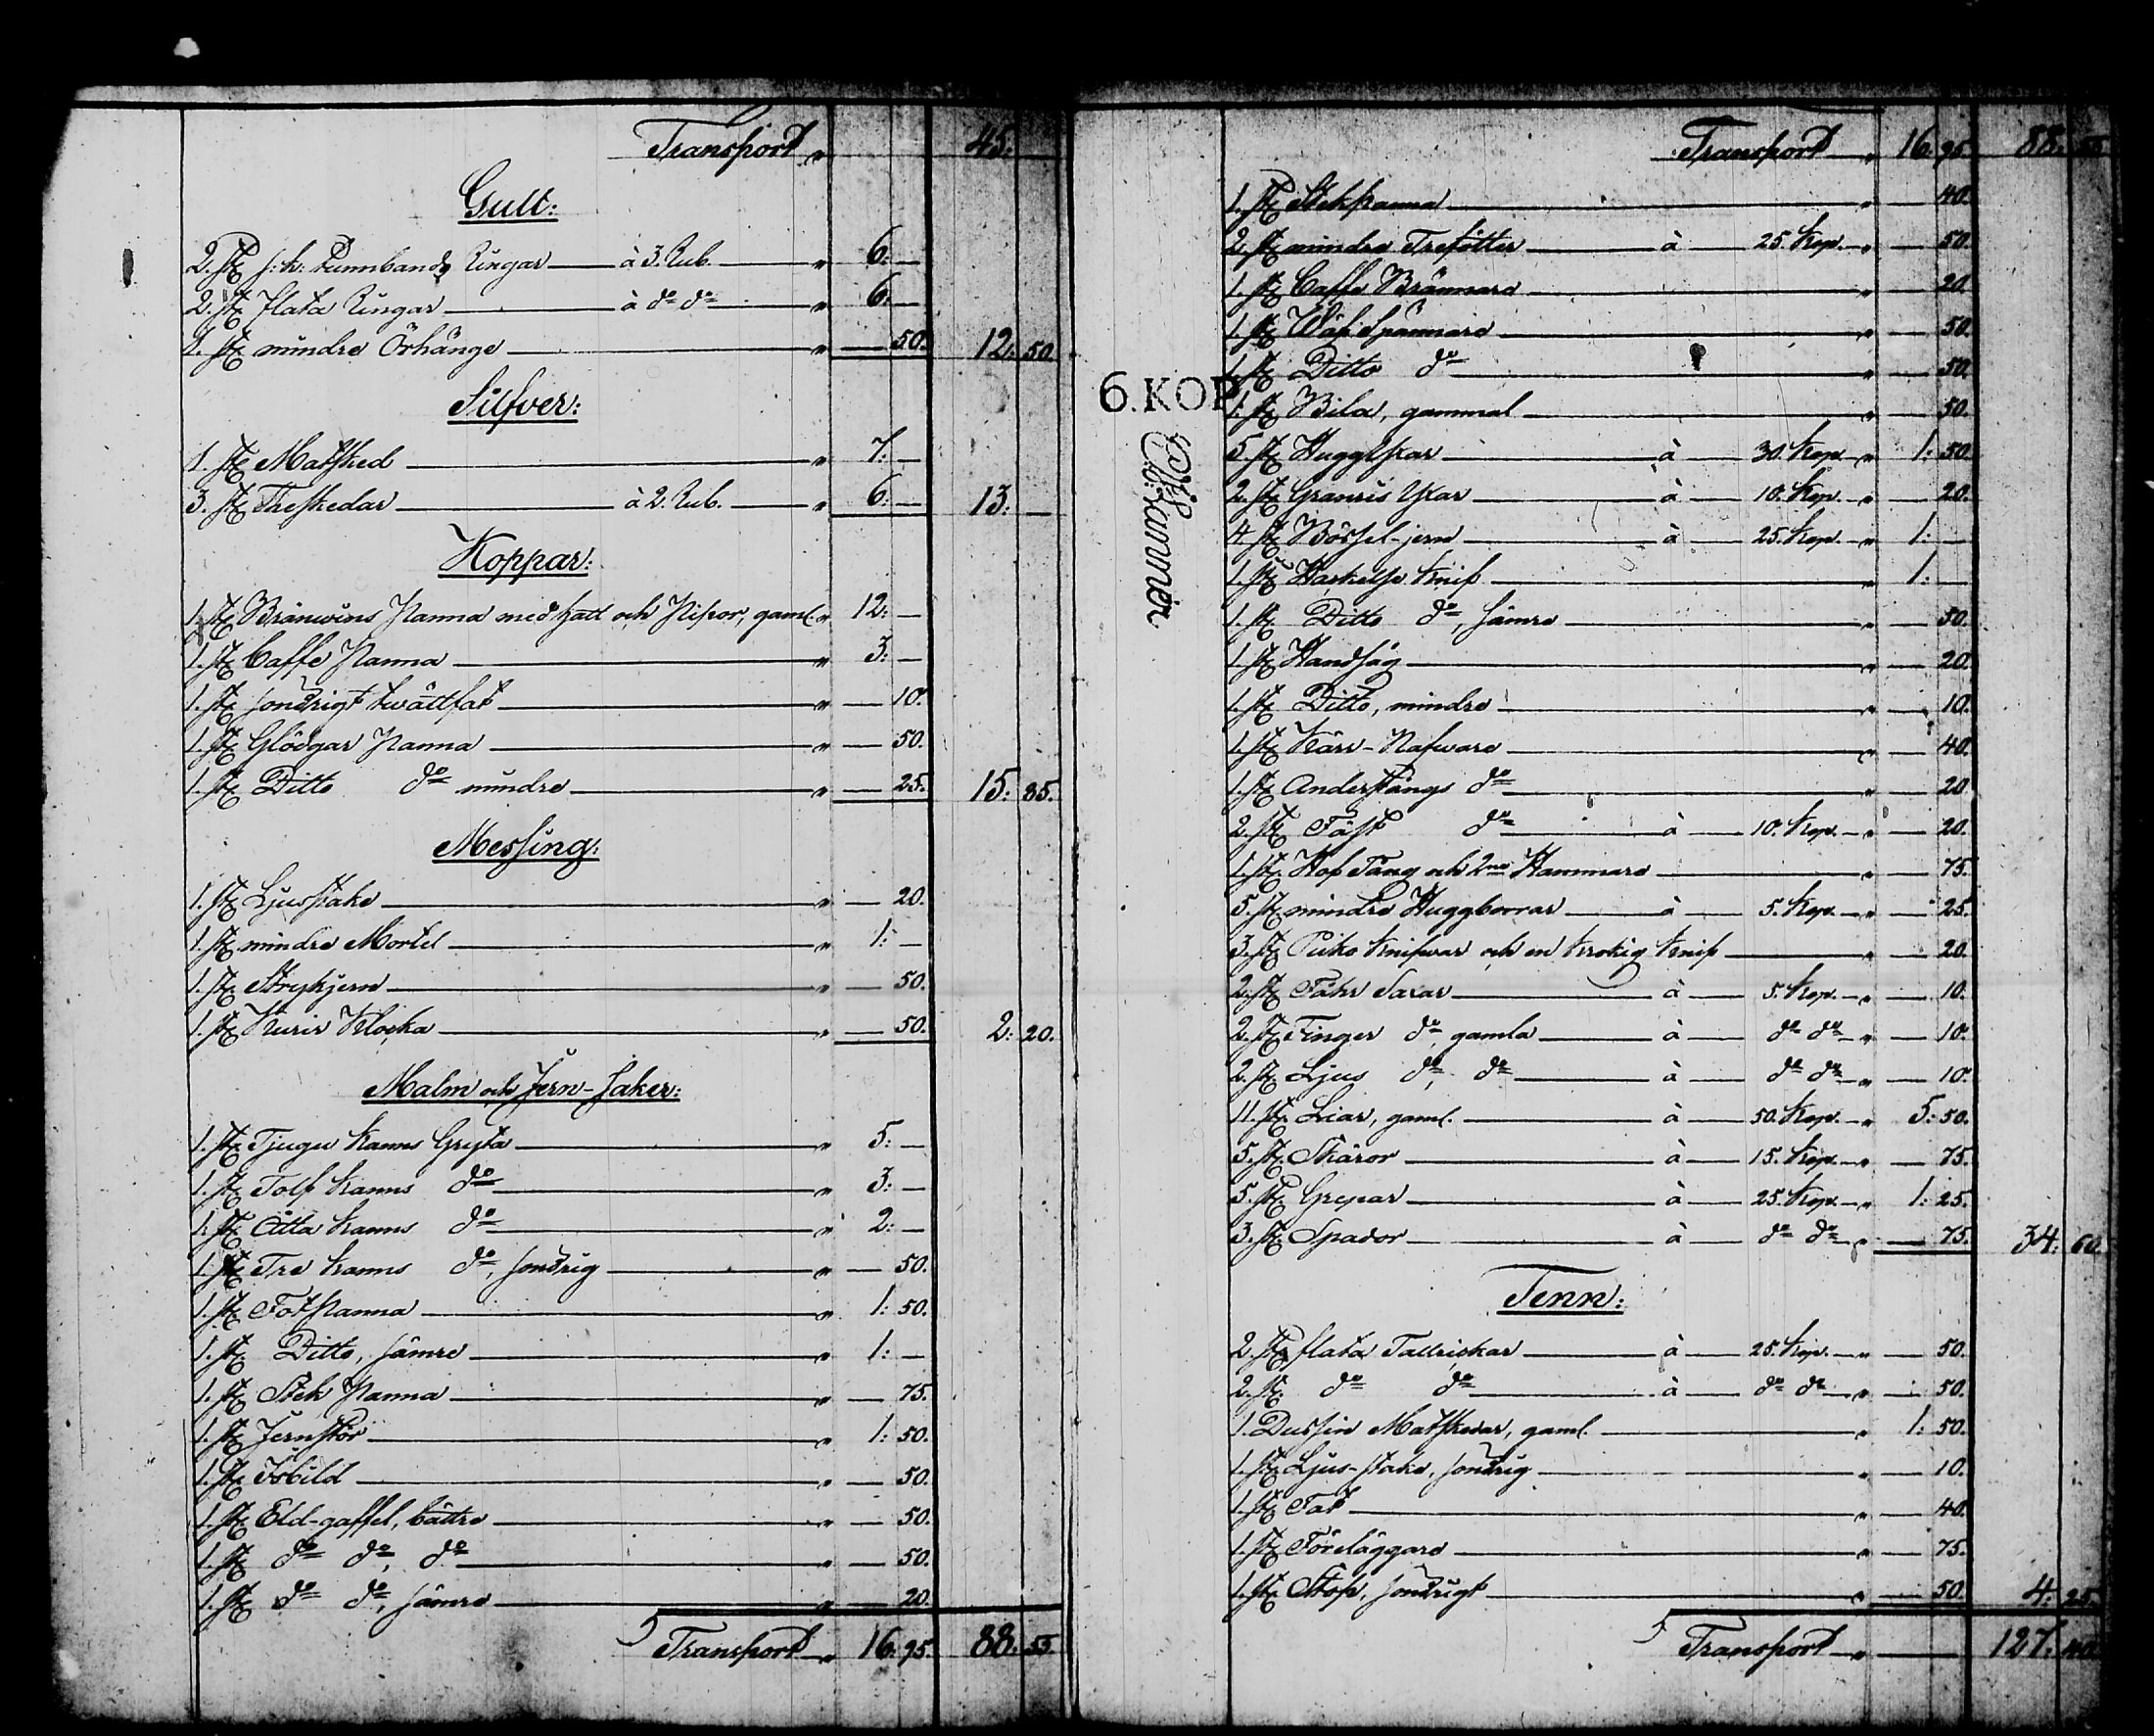 Transport „ 45: —
Gull:
2. st. s: k: Pannbands Ringar — à 3. Rub. — „ 6: —
2. st. flata Ringar — à do do — „ 6: —
1. st. mindre Örhänge — „ — 50. 12: 50.
Silfver:
1. st. Matsked — „ 7: —
3. st. Theskedar — à 2. Rub. — „ 6: — 13: —
Koppar:
1. st. Bränwins Panna med hatt och Pipor, gaml. „ 12: —
1. st. Caffe Panna — „ 3: —
1. st. söndrigt twättfat — „ — 10.
1. st. Glödgar Panna — „ — 50.
1. st. Ditto do mindre — „ — 25. 15: 85.
Messing:
1. st. Ljusstake — „ — 20.
1. st. mindre Mortel — „ 1: —
1. st. Strykjern — „ — 50.
1. st. Kurir Klocka — „ — 50. 2: 20.
Malm och Jern-saker:
1. st. Tjugu Kanns Gryta — „ 5: —
1. st. Tolf Kanns do — „ 3: —
1. st. Åtta Kanns do — „ 2: —
1. st. Tre Kanns do, söndrig — „ — 50.
1. st. Fotpanna — „ 1: 50.
1. st. Ditto, sämre — „ 1: —
1. st. Stek Panna — „ — 75.
1. st. Jernstör — „ 1: 50.
1. st. Isbild — „ — 50.
1. st. Eld-gaffel, bättre — „ — 50.
1. st. do do, do — „ — 50.
1. st. do do, sämre — „ — 20.
Transport „ 16: 95. 88: 55.
Transport „ 16: 95. 88: 55.
1. st. Stekpanna — „ — 40.
2. st. mindre Trefötter — à — 25. Kop. „ — 50.
1. st. Caffe Brännare — „ — 20.
1. st. Wäfspännare — „ — 50.
1. st. Ditto do — „ — 50.
6. KOP.
1. st. Bila, gammal — „ — 50.
5. st. Huggyxar — à — 30. Kop. „ 1: 50.
2. st. Granris Yxar — à — 10. Kop. „ — 20.
4. st. Börsel-jern — à — 25. Kop. „ 1: —
1. st. Hackelse Knif — „ 1: —
1. st. Ditto do, sämre — „ — 50.
1. st. Handsåg — „ — 20.
1. st. Ditto, mindre — „ — 10.
1. st. Kärr-Nafware — „ — 40.
1. st. Anderstångs do — „ — 20.
2. st. Fäst do — à — 10. Kop. „ — 20.
1. st. Hof Tång och 2ne Hammare — „ — 75.
5. st. mindre Huggborrar — à — 5. Kop. „ — 25.
3. st. Puko Knifwar och en krokig Knif — „ — 20.
2. st. Fåhr Saxar — à — 5. Kop. „ — 10.
2. st. Finger do, gamla — à — do do „ — 10.
2. st. Ljus do, do — à — do do „ — 10.
11. st. Liar, gaml. — à — 50. Kop. „ 5: 50.
5. st. Skäror — à — 15. Kop. „ — 75.
5. st. Grepar — à — 25. Kop. „ 1: 25.
3. st. Spador — à — do do „ — 75. 34: 60.
Tenn:
2. st. flata Tallrickar — à — 25. Kop. „ — 50.
2. st. do do — à — do do „ — 50.
1. Dussin Matskedar, gaml. — „ 1: 50.
1. st. Ljus-stake, söndrig — „ — 10.
1. st. Fat — „ — 40.
1. st. Föreläggare — „ — 75.
1. st. Stop, söndrigt — „ — 50. 4: 25.
Transport „ — 127: 40.